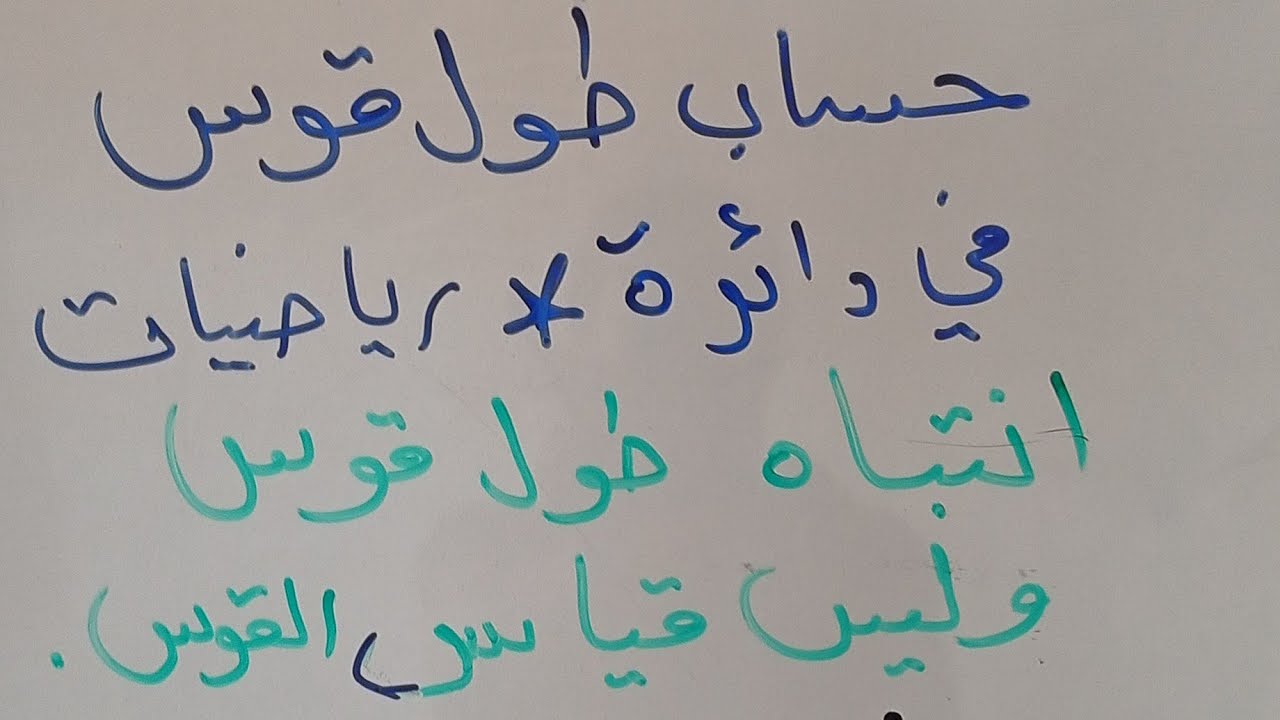 حساب طول قوس
في دائرة * رياضيات
انتباه طول قوس
وليس قياس القوس.